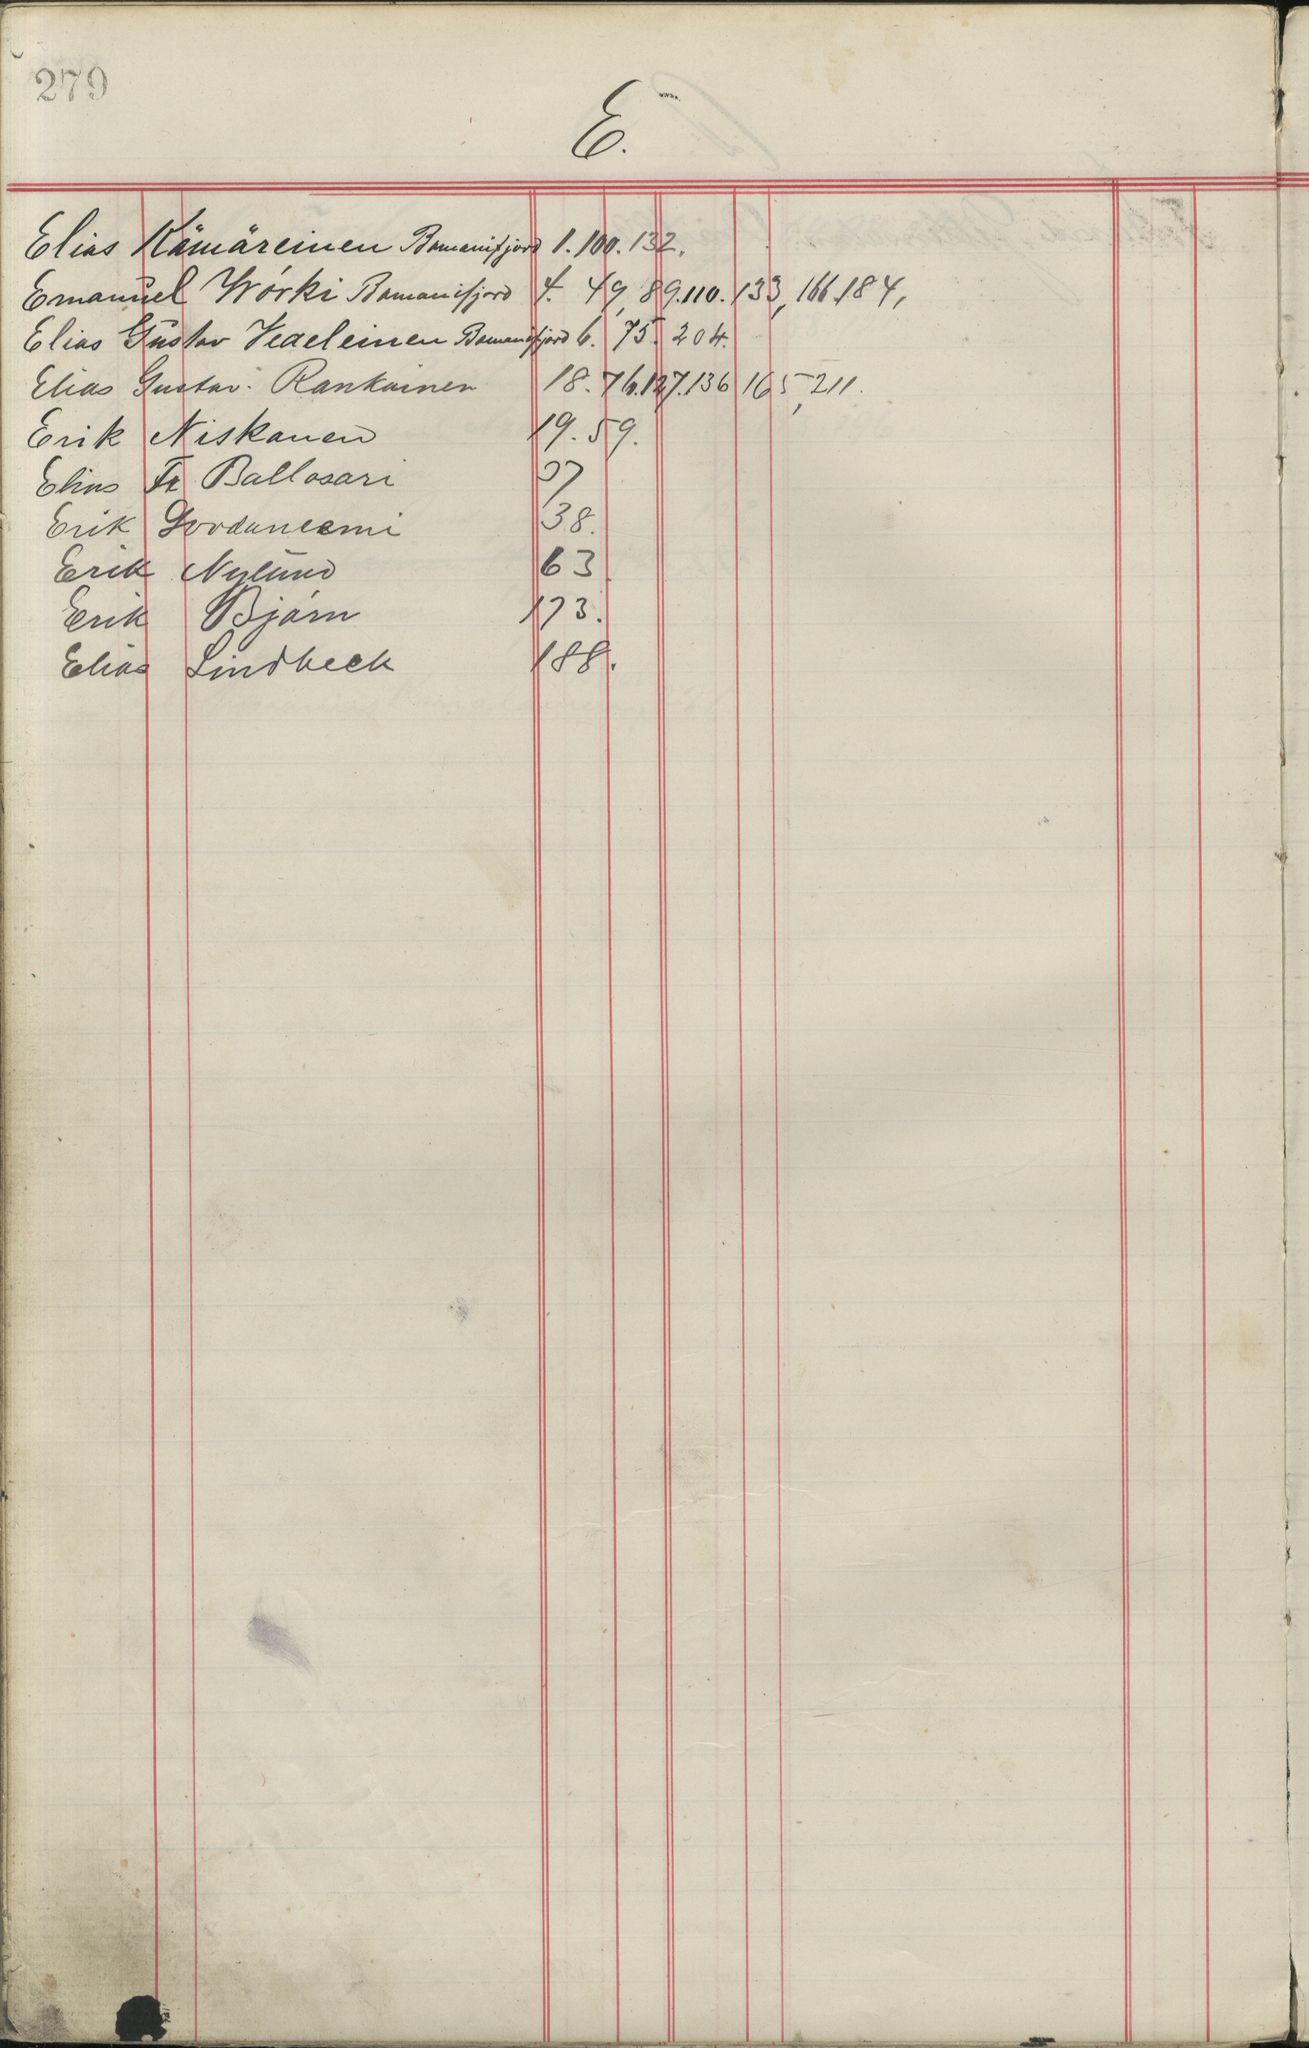 279
E.
Elias Kämäreinen Bomanifjord 1. 100. 132.
Emanuel Wörki Bomanifjord 4. 49, 89. 110. 133, 166. 184,
Elias Gustav Veaeleinen Bomanifjord 6. 75. 204.
Elias Gustav. Rankainen 18. 76. 127. 136 165, 211.
Erik Niskanen 19. 59.
Elias Fr Ballosari 37
Erik 38.
Erik Nylund 63
Erik Björn 173.
Elias Lindbeck 188.